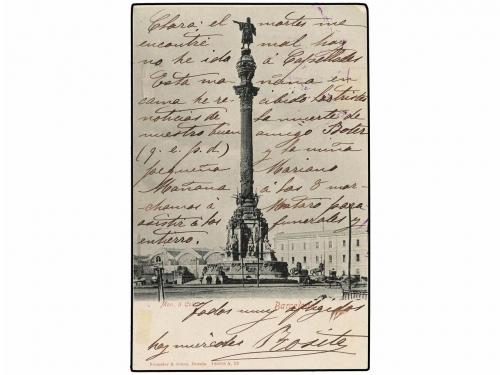 Clara: el martes me
encontré mal hoy
no he ido á Capellades
Esta ma ñana en
cama he re cibido las tristes
noticias de la muerte de
nuestro buen amigo Boter
(q. e. p. d.) y la niña
pequeña Mariano
Mañana á las 8 mar-
chamos á Mataro para
asistir á los funerales y
entierro.
Mon. a Co
Barcel
Todos muy afligidos
hoy miércoles Rosita